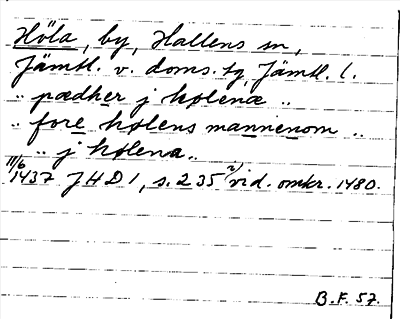 Höla, by, Hallens sn,
Jämtl. v. doms. tg, Jämtl. l.
.. pædher j hølenæ ..
.. fore hølens mannenom ..
.. j hølena ..
11/6 1437 JHD 1, s. 235 2) vid. omkr. 1480.
B.F. 57.